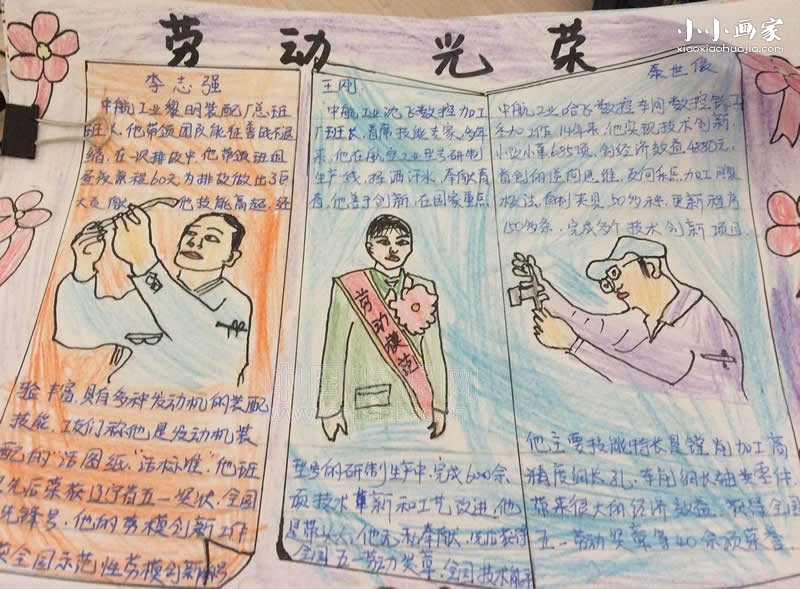 小小画家
xiaoxiaohuajia.com
劳动光荣
李志强
中航工业黎明装配厂总班
班长,他带领团队能征善战不退
缩,在一次排故中,他带领班组
60天为排故做出了巨
大贡献 他技能高超,经
验丰富,具有多种发动机的装配
技能,工友们称他是发动机装
配的“活图纸”“活标准”,他班
先后荣获辽宁省五一奖状,全国
先锋号,他的劳模创新工作
获全国示范性劳模创新
王刚
中航工业沈飞数控加工
厂班长,首席技能专家,多年
来,他在航空工业型号研制
生产线,挥洒汗水,奉献青
春,他善于创新,在国家重点
型号的研制生产中,完成600余
项技术革新和工艺改进,他
是带头人,他无私奉献,先后获得
全国五一劳动奖章,全国技术能手
劳动模范
秦世俊
中航工业哈飞数控车间数控铣工
参加工作14年来,他实现技术创新,
小改小革685项,创经济效益4880元,
首创的逆向思维,反向
极法,自制夹具50多种,更新程序
150多条,完成多个技术创新项目
他主要技能特长是镗削加工高
精度细长孔,车削细长轴类零件
带来很大的经济效益,获得全国
五一劳动奖章等40余项荣誉